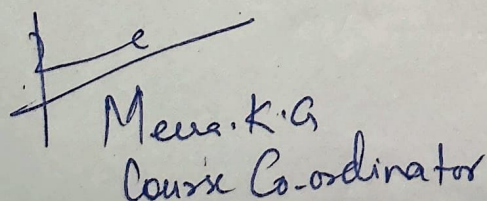 Meera.K.G
Course Co-ordinator